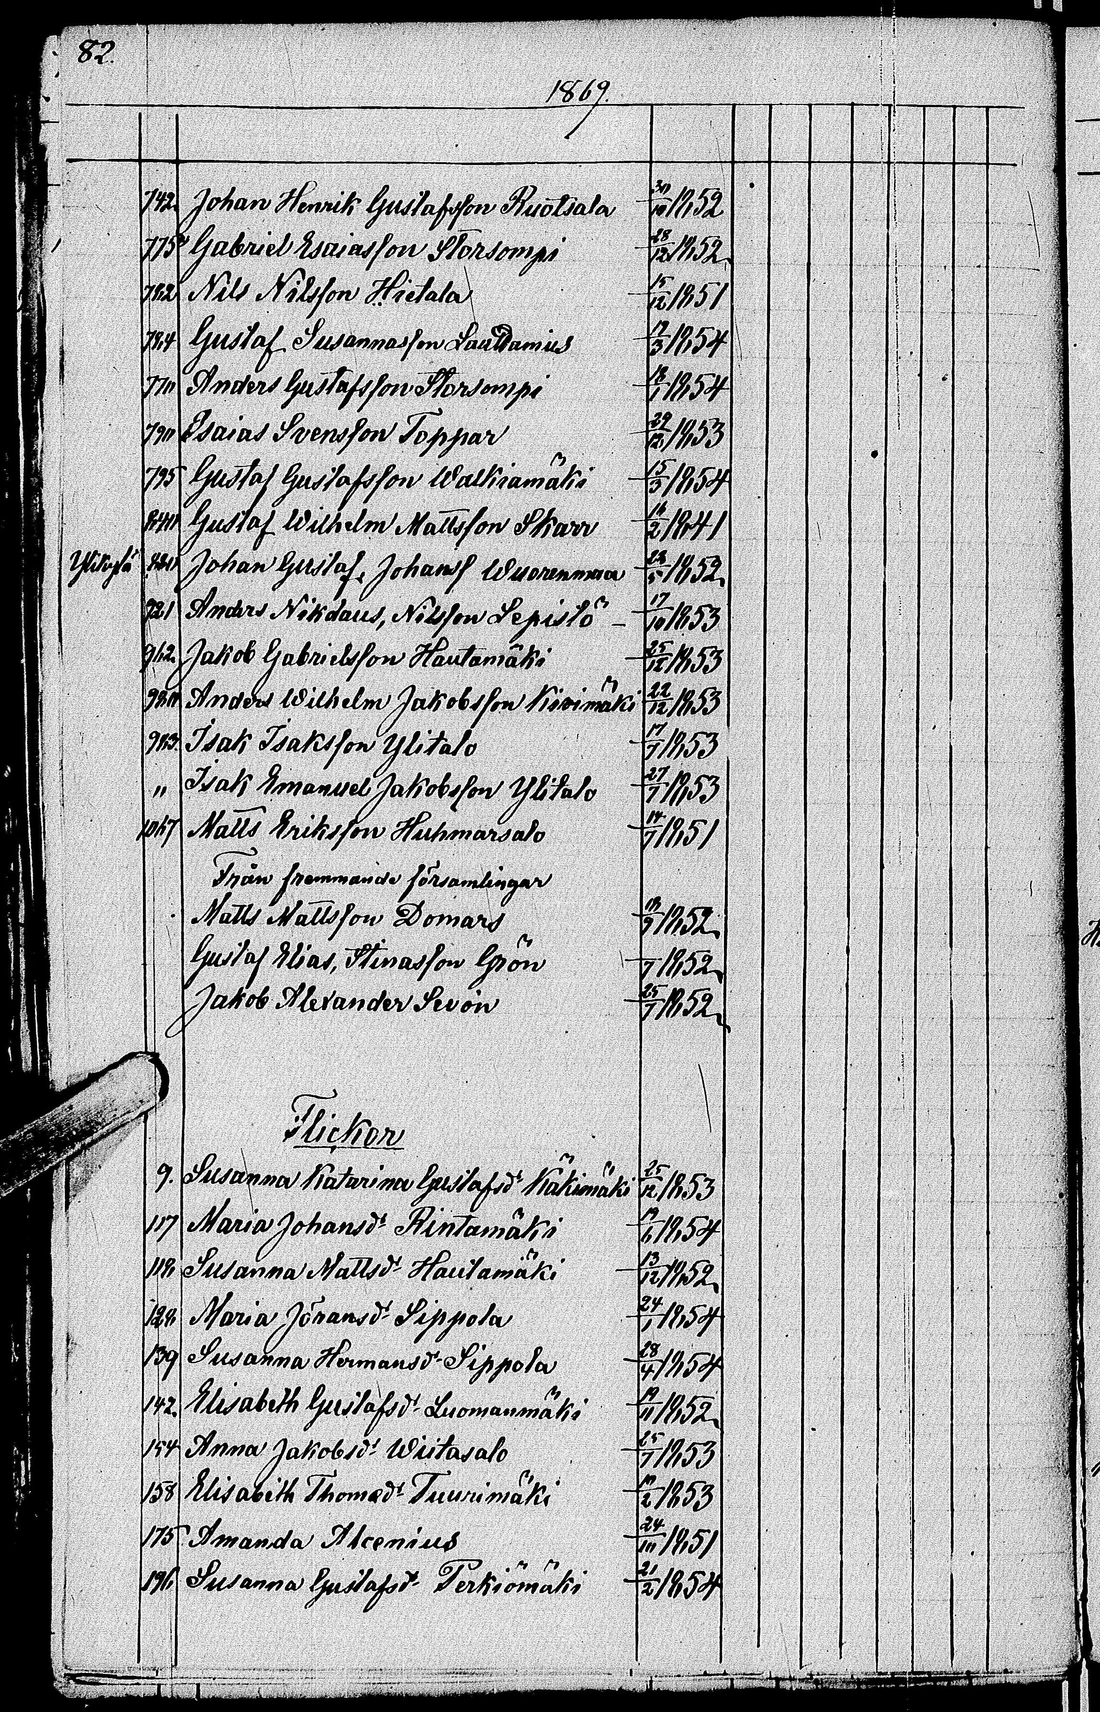 82.
1869.
742. Johan Henrik Gustafsson Ruotsala 30/10 1852
775 Gabriel Esaiasson Storsompi 28/12 1852
782 Nils Nilsson Hietala 15/12 1851
784 Gustaf Susannasson 17/3 1854
770 Anders Gustafsson Storsompi 18/1 1854
790 Esaias Svensson Toppar 29/12 1853
795 Gustaf Gustafsson Walkiamäki 15/3 1854
840 Gustaf Wilhelm Mattsson Skarr 16/2 1841
Johan Gustaf, Johanss Wuorenmaa 23/5 1852
921 Anders Niklaus, Nilsson Lepistö 17/10 1853
962. Jakob Gabrielsson Hautamäki 25/12 1853
980 Anders Wilhelm Jakobsson Kivimäki 22/12 1853
983. Isak Isaksson Ylitalo 17/7 1853
" Isak Emanuel Jakobsson Ylitalo 27/7 1853
1067 Matts Eriksson Huhmarsalo 14/7 1851
Från fremmande församlingar
Matts Mattsson Domars 18/9 1852
Gustaf Elias, Stinasson Grön /7 1852
Jakob Alexander Sevón 25/7 1852
Flickor
9. Susanna Katarina Gustafsdr Käkimäki 25/12 1853
117 Maria Johansdr Rintamäki 19/6 1854
118 Susanna Mattsdr Hautamäki 13/12 1852
128 Maria Jöransdr Sippola 24/1 1854
139 Susanna Hermansdr Sippola 28/4 1854
142. Elisabeth Gustafsdr Luomanmäki 19/11 1852
154 Anna Jakobsdr Wiitasalo 25/7 1853
158 Elisabeth Thomædr Tuurimäki 10/2 1853
175 Amanda Alcenius 24/10 1851
196 Susanna Gustafsdr Perkiömäki 21/2 1854